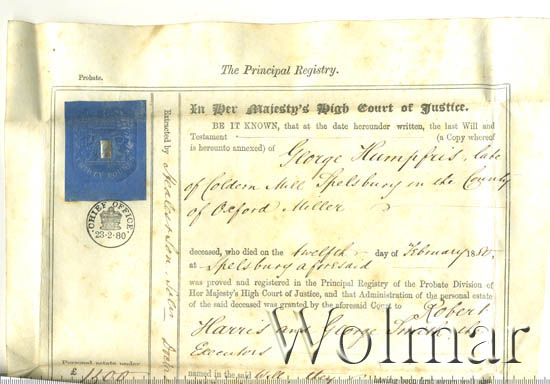 The Principal Registry.
Probate.
In Her Majesty's High Court of Justice.
BE IT KNOWN, that at the date hereunder written, the last Will and
Testament (a Copy whereof
is hereunto annexed) of
George Humpfris, late
of Coldern Mill Spelsbury in the County
of Oxford Miller
deceased, who died on the twelfth day of February 1880,
at Spelsbury aforesaid
was proved and registered in the Principal Registry of the Probate Division of
Her Majesty's High Court of Justice, and that Administration of the personal estate
of the said deceased was granted by the aforesaid Court to Robert
Harris and George the
Executors
named in the said Will they
CHIEF OFFICE
23·2·80
Extracted by
Personal estate under
£
Wolmar